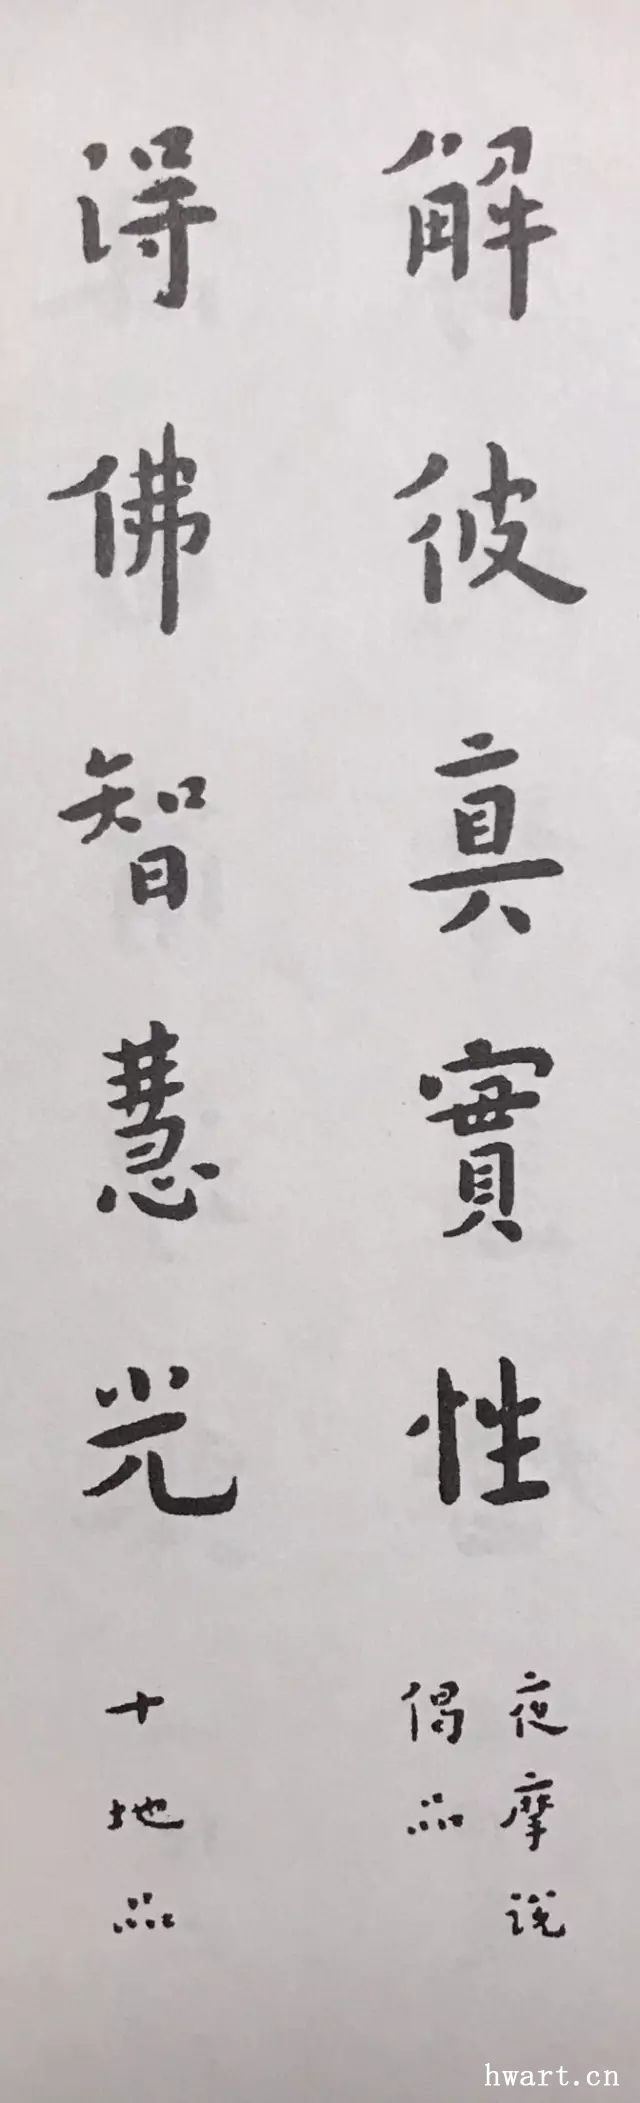 解彼真實性
夜摩說
偈品
得佛智慧光
十地品
hwart.cn